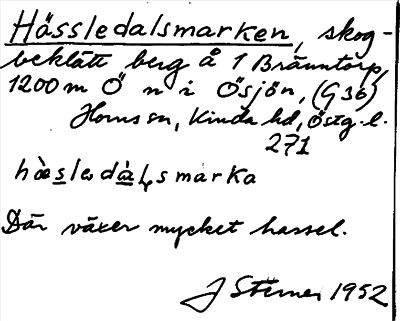 Hässledalsmarken, skog-
beklätt berg å 1 Bränntorp,
1200 m Ö n i Ösjön, (G36)
Horns sn, Kinda hd, Östg. l.
271
hæ̀sledàLsmarka
Där växer mycket hassel.
J Sterner 1952